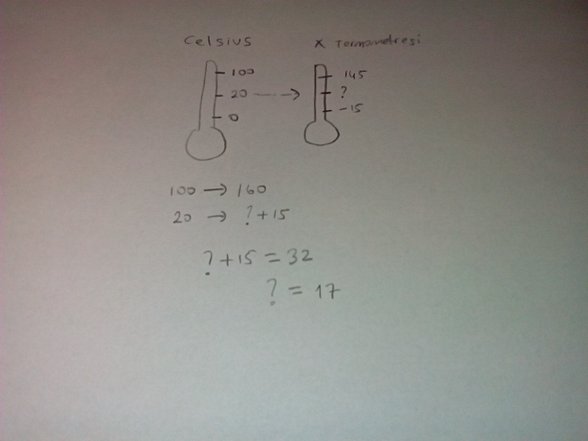 Celsius X Termometresi
100 145
20 ---→ ?
0 -15
100 → 160
20 → ?+15
?+15 = 32
? = 17